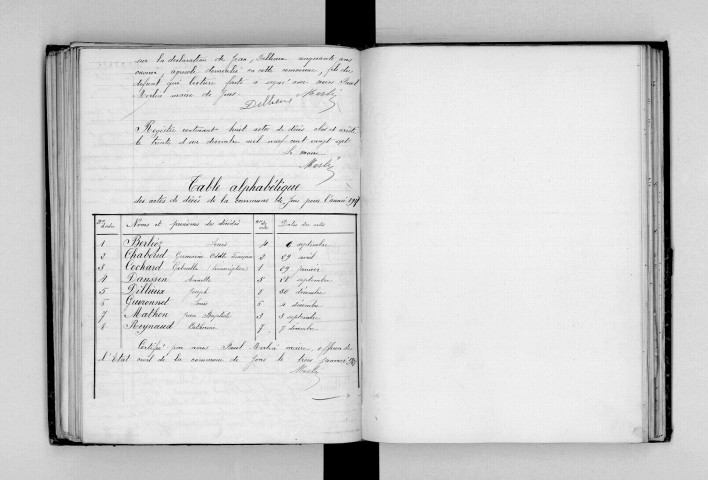 sur la déclaration de Jean, Dillieux cinquante ans
ouvrier agricole domicilié en cette commune, fils du
défunt qui lecture faite a signé avec nous Paul
Merlin maire de Jons
Dillieux
Registre contenant huit actes de décès clos et arrêté
le trente et un décembre mil neuf cent vingt sept
Le maire
Table alphabétique
des actes de décès de la commune de Jons pour l'année
Nos d'ordre Noms et prénoms des décédés Nos des actes Dates des actes
1 Berliez 4 septembre
2 Chaboud Germaine Odette 2 29 avril
3 Cochard Gabrielle 1 29 janvier
4 Danssin 5 septembre
5 Dillieux Joseph 8 30 décembre
6 Guironnet Louis 6 4 décembre
7 Mathon Jean Baptiste 3 3 septembre
8 Reynaud Catherine 7 7 décembre
Certifié par nous Paul Merlin maire, officier de
l'Etat civil de la commune de Jons le trois janvier